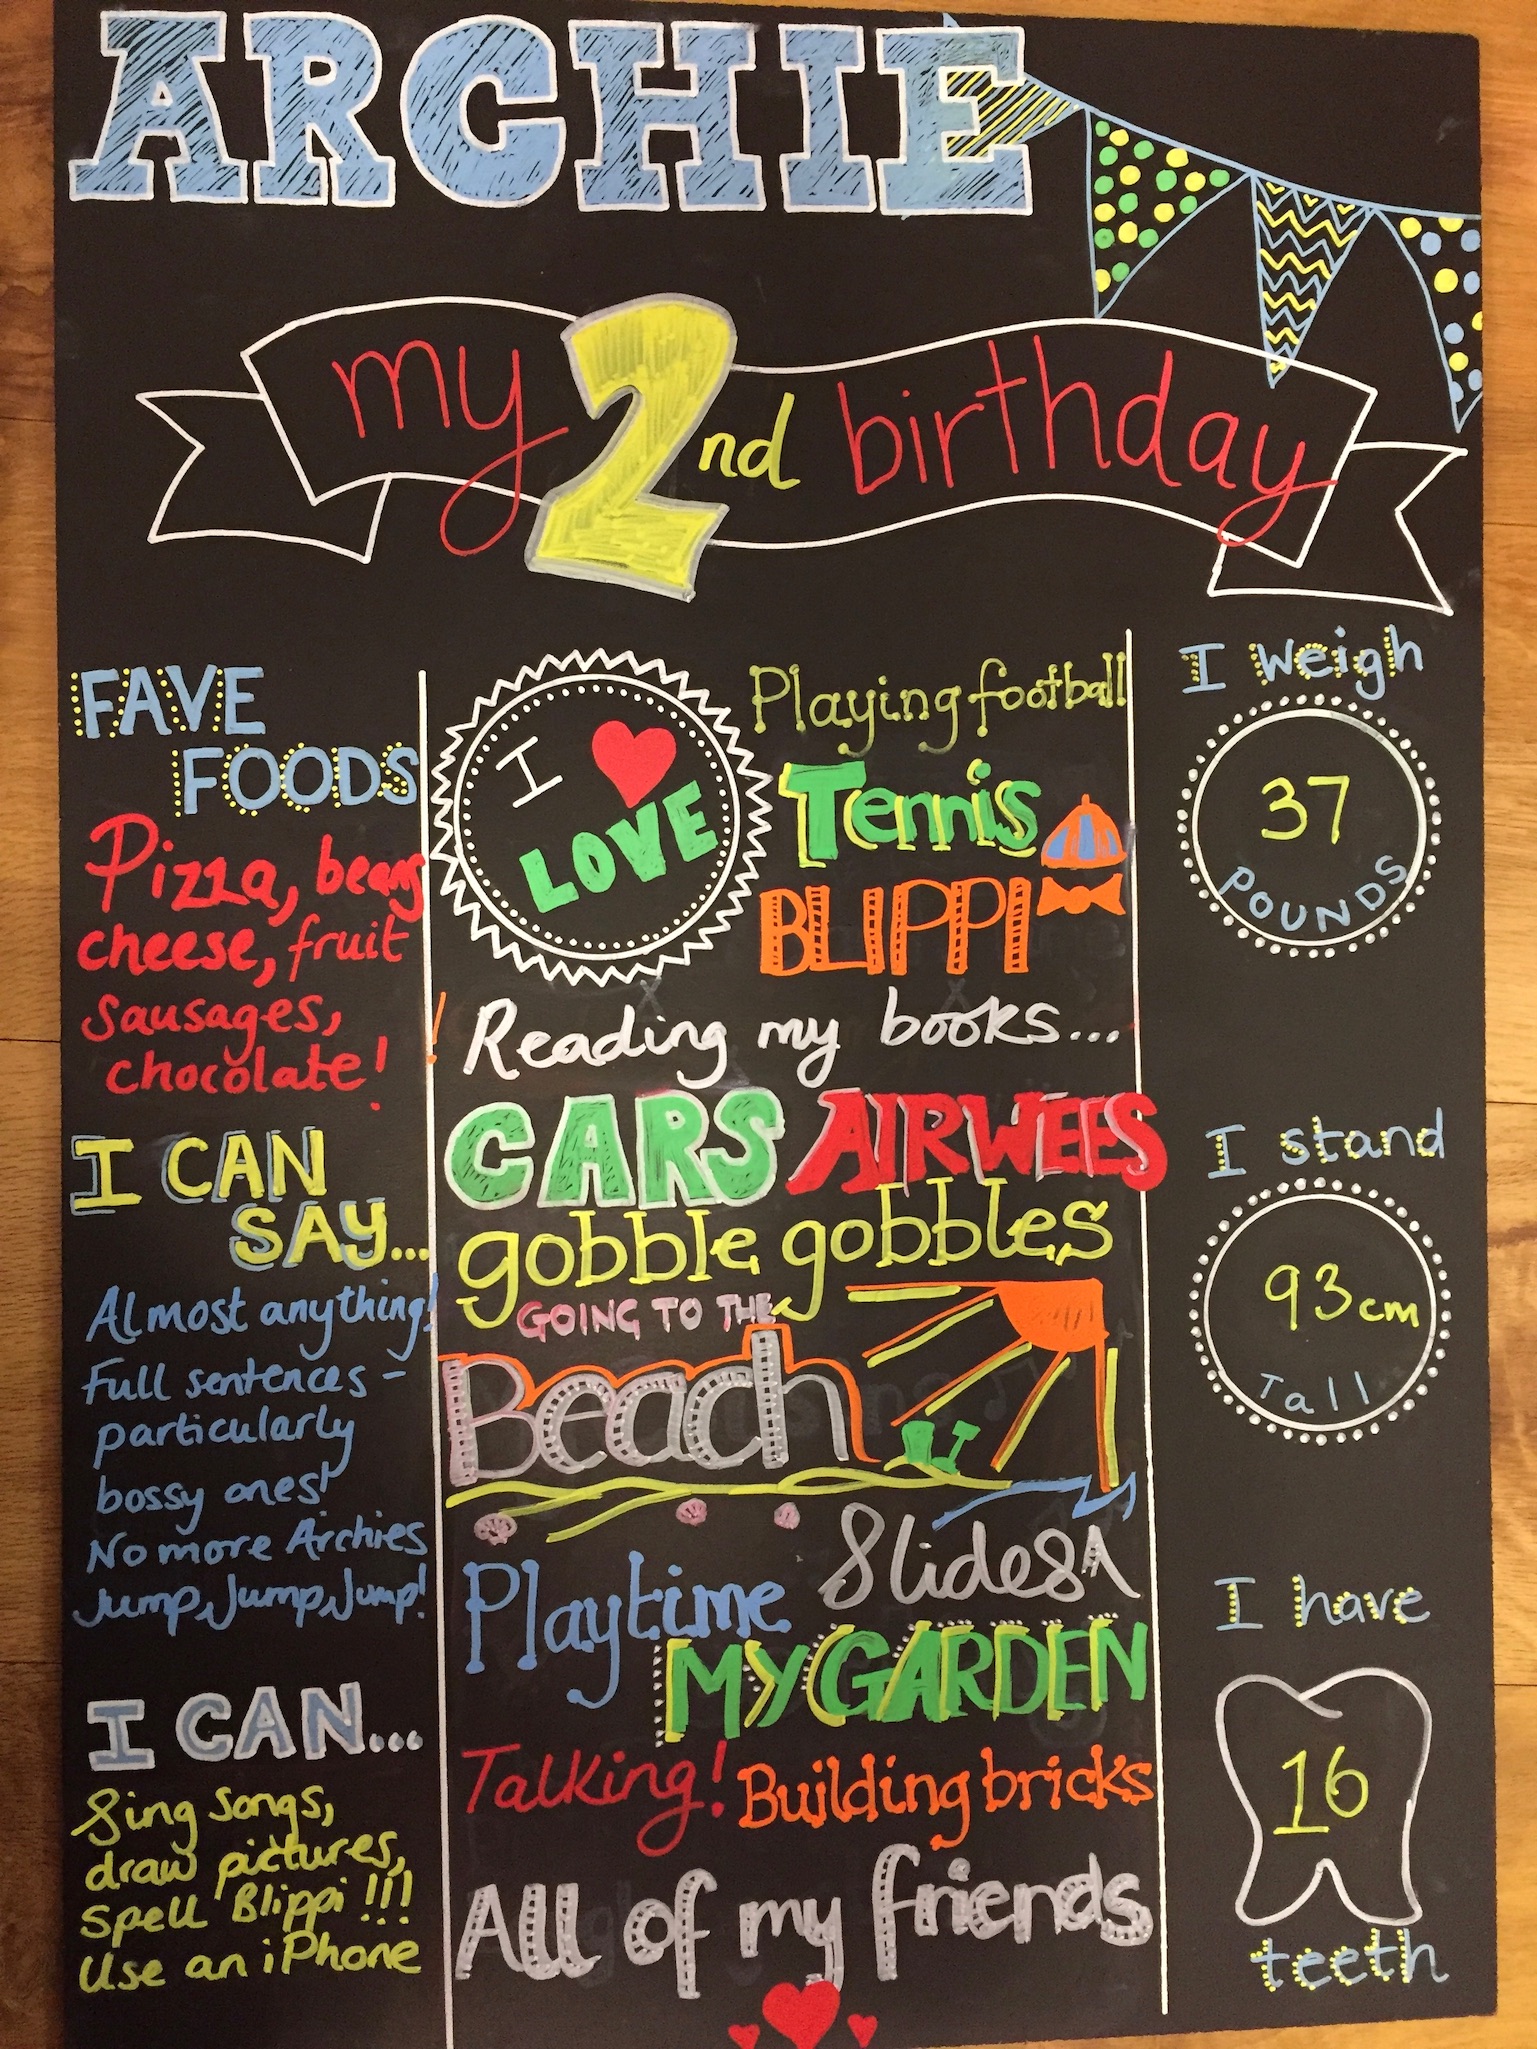 ARCHIE
my 2nd birthday
FAVE
FOODS
Pizza, beans
cheese, fruit
sausages,
chocolate!
I CAN
SAY...
Almost anything!
Full sentences -
particularly
bossy ones!
No more Archies
Jump, Jump, Jump!
I CAN...
Sing songs,
draw pictures,
Spell Blippi !!!
Use an iPhone
I
LOVE
Playing football
Tennis
BLIPPI
Reading my books...
CARS AIRWEES
gobble gobbles
GOING TO THE
Beach
Slides
Playtime
MY GARDEN
Talking! Building bricks
All of my friends
I weigh
37
POUNDS
I stand
93cm
Tall
I have
16
teeth